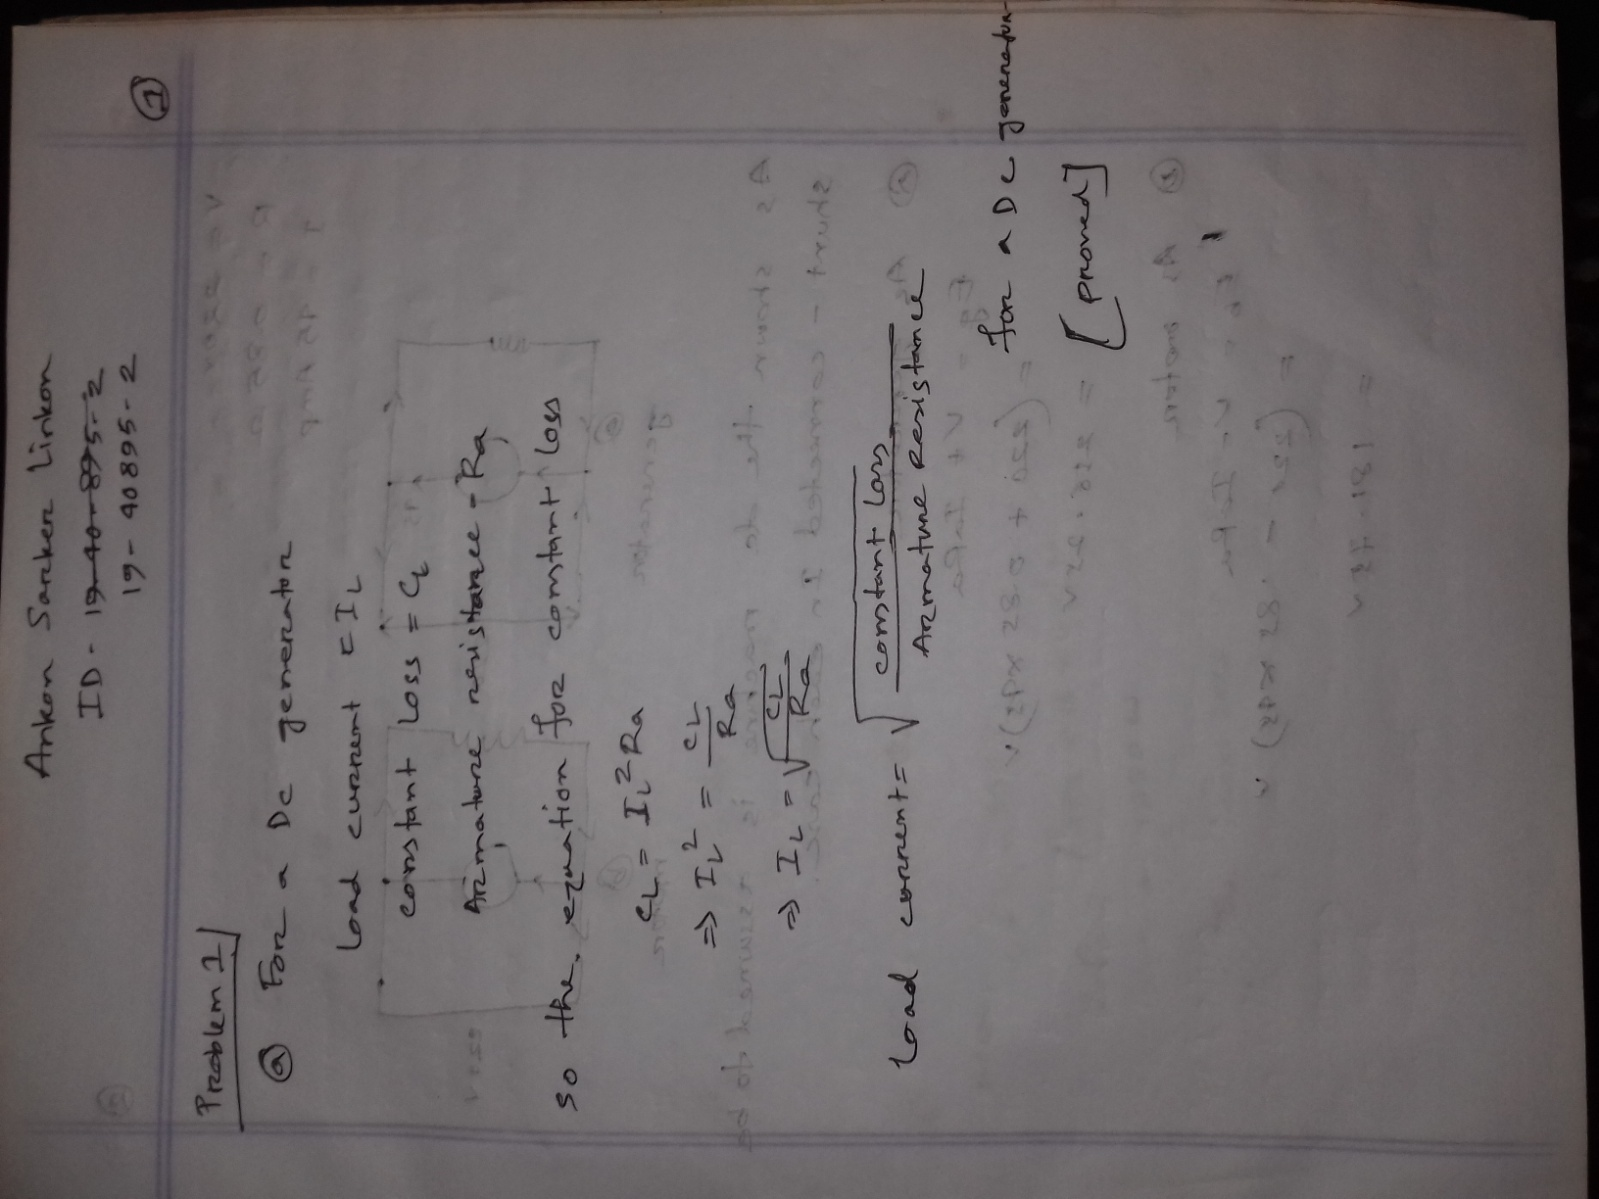 Ankon Sarker Linkon
ID - 19-40-895-2
19-40895-2
1
Problem 1
a For a Dc generator
Load current = IL
constant Loss = CL
Armature resistance = Ra
So the, equation for constant loss
CL = IL² Ra
⇒ IL² = CL/Ra
⇒ IL = √(CL/Ra)
Load current = √(constant Loss/Armature Resistance)
for a Dc generator
[proved]